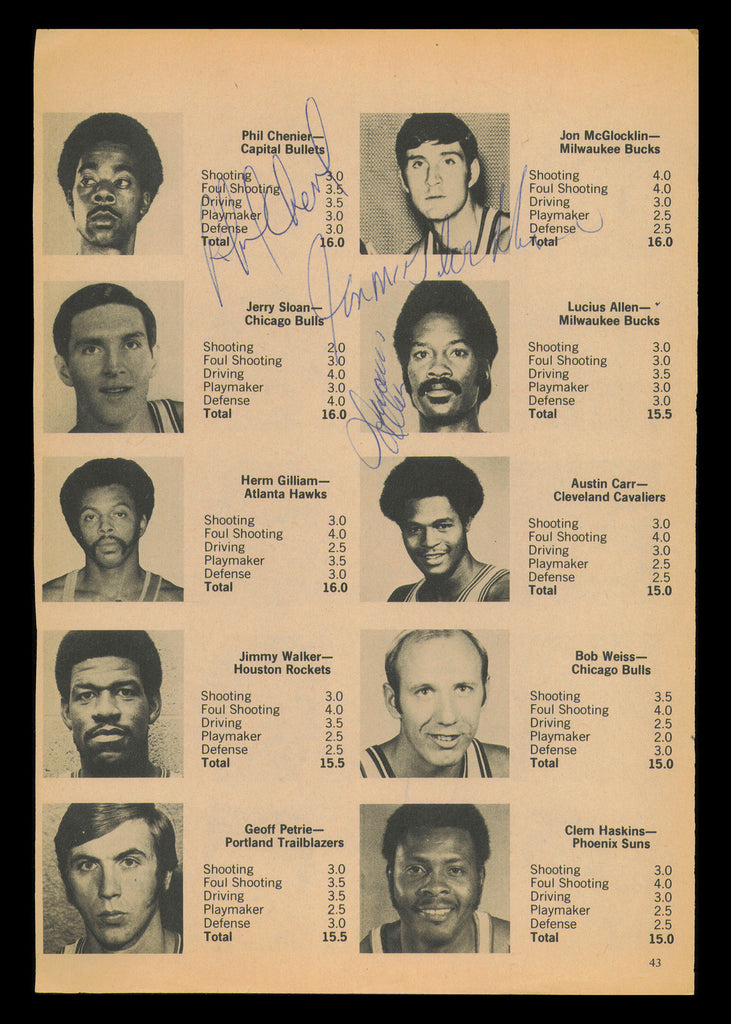 Phil Chenier—
Capital Bullets
Shooting 3.0
Foul Shooting 3.5
Driving 3.5
Playmaker 3.0
Defense 3.0
Total 16.0
Phil Chenier
Jon McGlocklin—
Milwaukee Bucks
Shooting 4.0
Foul Shooting 4.0
Driving 3.0
Playmaker 2.5
Defense 2.5
Total 16.0
Jon McGlocklin
Jerry Sloan—
Chicago Bulls
Shooting 2.0
Foul Shooting 3.0
Driving 4.0
Playmaker 3.0
Defense 4.0
Total 16.0
Lucius Allen—
Milwaukee Bucks
Shooting 3.0
Foul Shooting 3.0
Driving 3.5
Playmaker 3.0
Defense 3.0
Total 15.5
Lucius
Allen
Herm Gilliam—
Atlanta Hawks
Shooting 3.0
Foul Shooting 4.0
Driving 2.5
Playmaker 3.5
Defense 3.0
Total 16.0
Austin Carr—
Cleveland Cavaliers
Shooting 3.0
Foul Shooting 4.0
Driving 3.0
Playmaker 2.5
Defense 2.5
Total 15.0
Jimmy Walker—
Houston Rockets
Shooting 3.0
Foul Shooting 4.0
Driving 3.5
Playmaker 2.5
Defense 2.5
Total 15.5
Bob Weiss—
Chicago Bulls
Shooting 3.5
Foul Shooting 4.0
Driving 2.5
Playmaker 2.0
Defense 3.0
Total 15.0
Geoff Petrie—
Portland Trailblazers
Shooting 3.0
Foul Shooting 3.5
Driving 3.5
Playmaker 2.5
Defense 3.0
Total 15.5
Clem Haskins—
Phoenix Suns
Shooting 3.0
Foul Shooting 4.0
Driving 3.0
Playmaker 2.5
Defense 2.5
Total 15.0
43